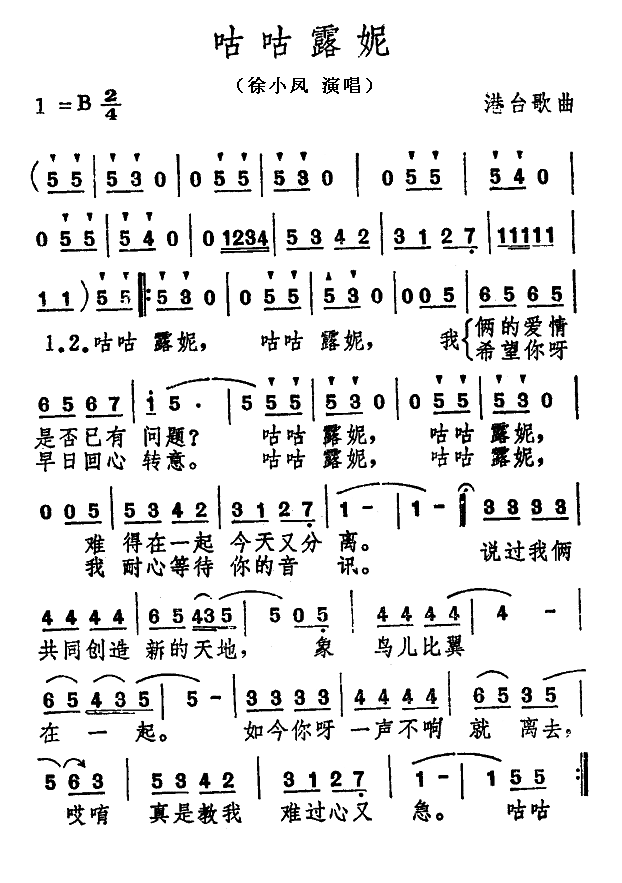 咕咕露妮
（徐小凤 演唱）
1 = B 2/4 港台歌曲
( 5 5 | 5 3 0 | 0 5 5 | 5 3 0 | 0 5 5 | 5 4 0 |
0 5 5 | 5 4 0 | 0 1234 | 5 3 4 2 | 3 1 2 7 | 11111 |
1 1 ) 5 5 |: 5 3 0 | 0 5 5 | 5 3 0 | 0 0 5 | 6 5 6 5 |
1.2.咕咕 露妮， 咕咕 露妮， 我{俩的爱情
希望你呀
6 5 6 7 | i 5 · | 5 5 5 | 5 3 0 | 0 5 5 | 5 3 0 |
是否已有 问题？ 咕咕 露妮， 咕咕 露妮，
早日回心 转意。 咕咕 露妮， 咕咕 露妮，
0 0 5 | 5 3 4 2 | 3 1 2 7 | 1 - | 1 - | 3 3 3 3 |
难 得在一起 今天又分 离。 说过我俩
我 耐心等待 你的音 讯。
4 4 4 4 | 6 5 435 | 5 0 5 | 4 4 4 4 | 4 - |
共同创造 新的天地， 象 鸟儿比翼
6 5 4 3 5 | 5 · | 3 3 3 3 | 4 4 4 4 | 6 5 3 5 |
在 一 起。 如今你呀 一声不响 就 离去，
5 6 3 | 5 3 4 2 | 3 1 2 7 | 1 - | 1 5 5 :|
哎唷 真是教我 难过心又 急。 咕咕